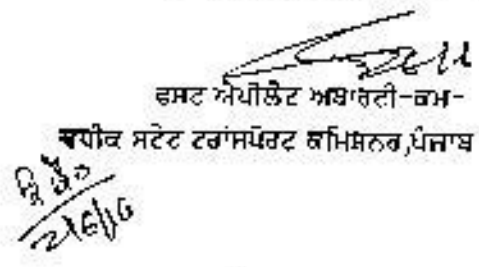 ਫਸਟ ਐਪੀਲੈਟ ਅਥਾਰਟੀ-ਕਮ-
ਵਧੀਕ ਸਟੇਟ ਟਰਾਂਸਪੋਰਟ ਕਮਿਸ਼ਨਰ,ਪੰਜਾਬ
2/6/16